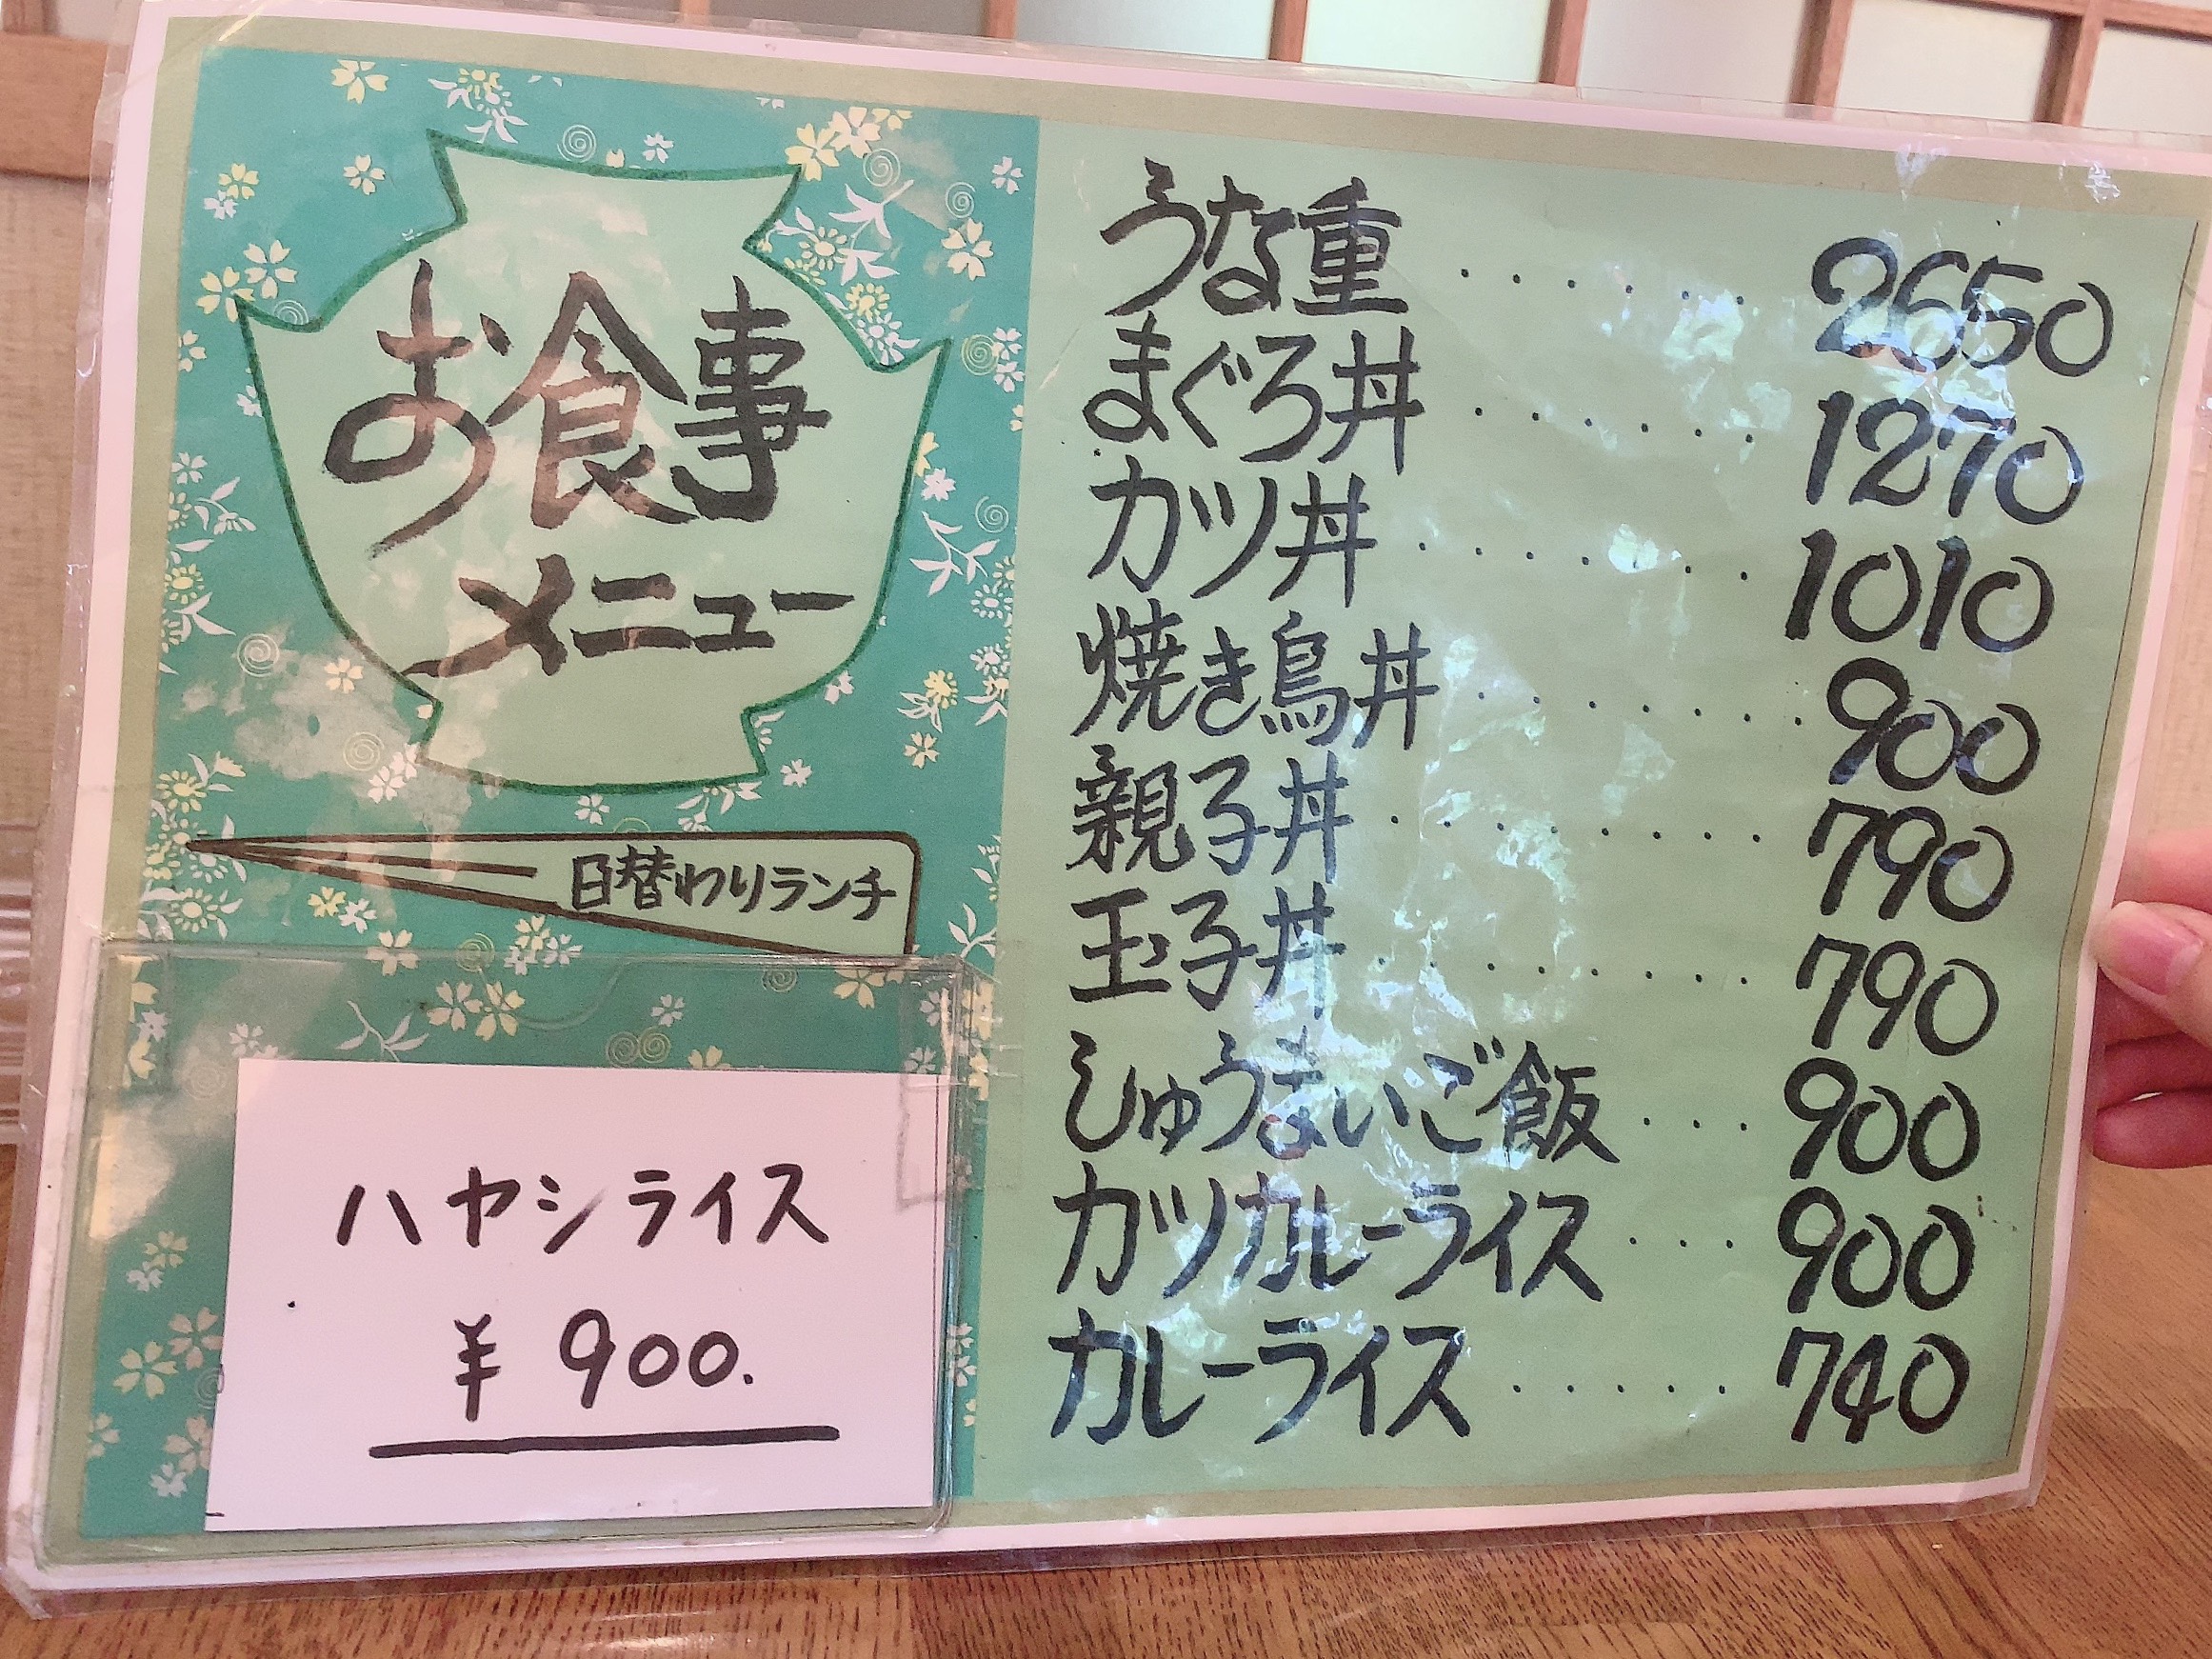 お食事
メニュー
日替わりランチ
ハヤシライス
¥ 900.
うな重 ・・・・・・ 2650
まぐろ丼 ・・・・・・・ 1270
カツ丼 ・・・・・・・ 1010
焼き鳥丼 ・・・・・・・ 900
親子丼 ・・・・・・・・ 790
玉子丼 ・・・・・・・・ 790
しゅうまいご飯 ・・・ 900
カツカレーライス ・・・・ 900
カレーライス ・・・・・ 740